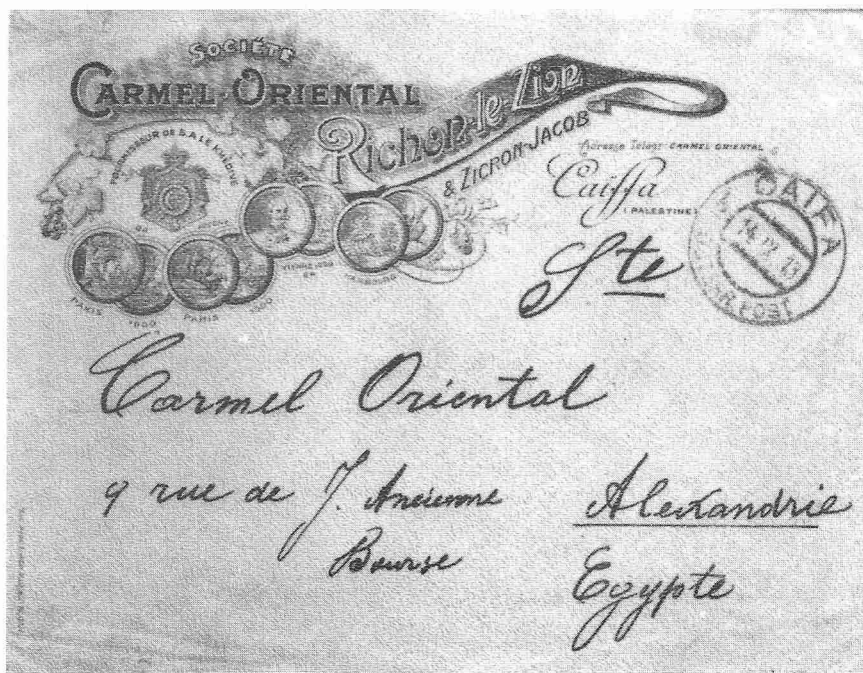 SOCIÉTÉ
CARMEL-ORIENTAL
Richon-le-Zion
& ZICRON-JACOB
FOURNISSEUR DE S.A. LE KHEDIVE
Adresse Telegr. CARMEL ORIENTAL
Caiffa
(PALESTINE)
CAIFA
14 IV 13
PARIS 1900
PARIS 1900
VIENNE
Ste
Carmel Oriental
9 rue de J. Ancienne
Bourse
Alexandrie
Egypte